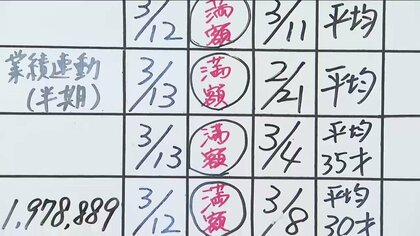 3/12 満額 3/11 平均
業績連動
(半期) 3/13 満額 2/21 平均
3/13 満額 3/4 平均
35才
1,978,889 3/12 満額 3/8 平均
30才